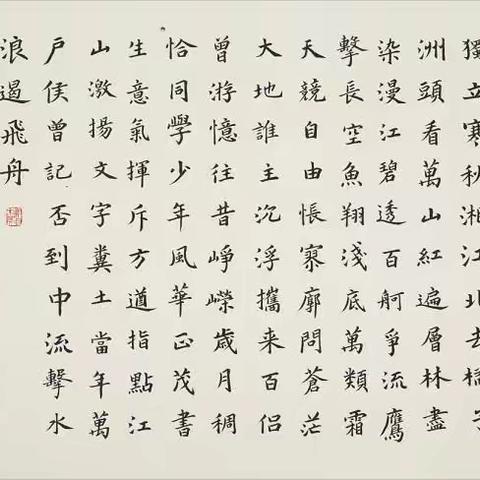 獨立寒秋湘江北去橘子
洲頭看萬山紅遍層林盡
染漫江碧透百舸爭流鷹
擊長空魚翔淺底萬類霜
天競自由悵寥廓問蒼茫
大地誰主沉浮攜来百侣
曾游憶往昔崢嶸歲月稠
恰同學少年風華正茂書
生意氣揮斥方遒指點江
山激揚文字糞土當年萬
户侯曾記否到中流擊水
浪遏飛舟